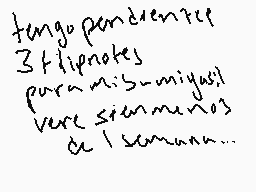 tengo pendientes
3 flipnotes
para mis amigas!
vere si en menos
de 1 semana...